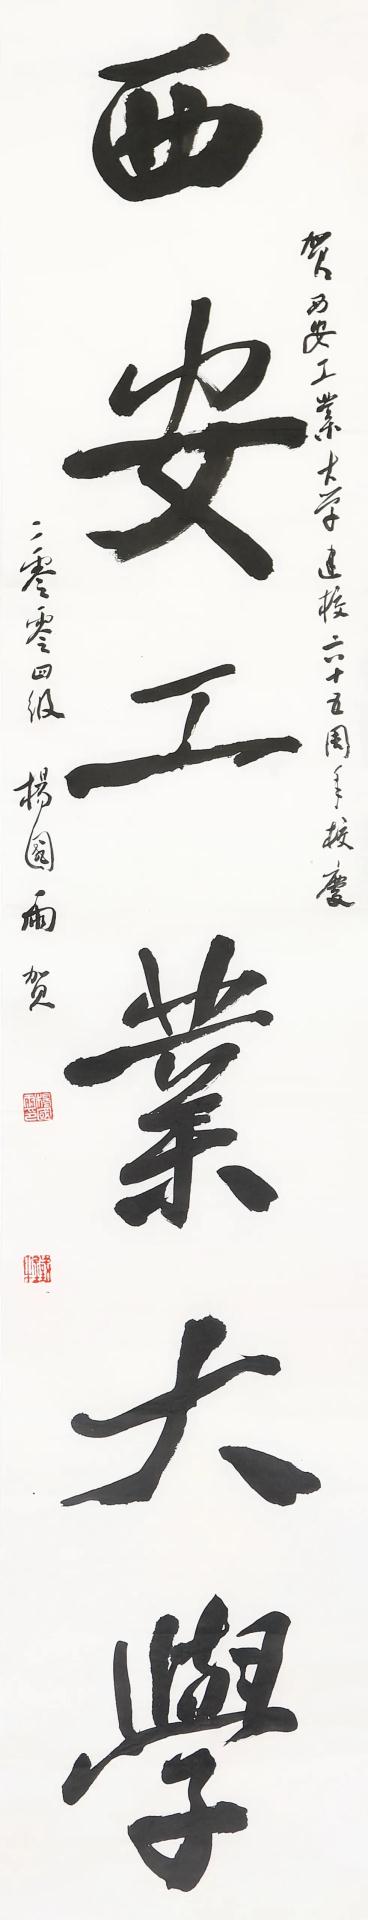 賀西安工業大学建校六十五周年校慶
西安工業大學
二零零四级 楊國雨贺